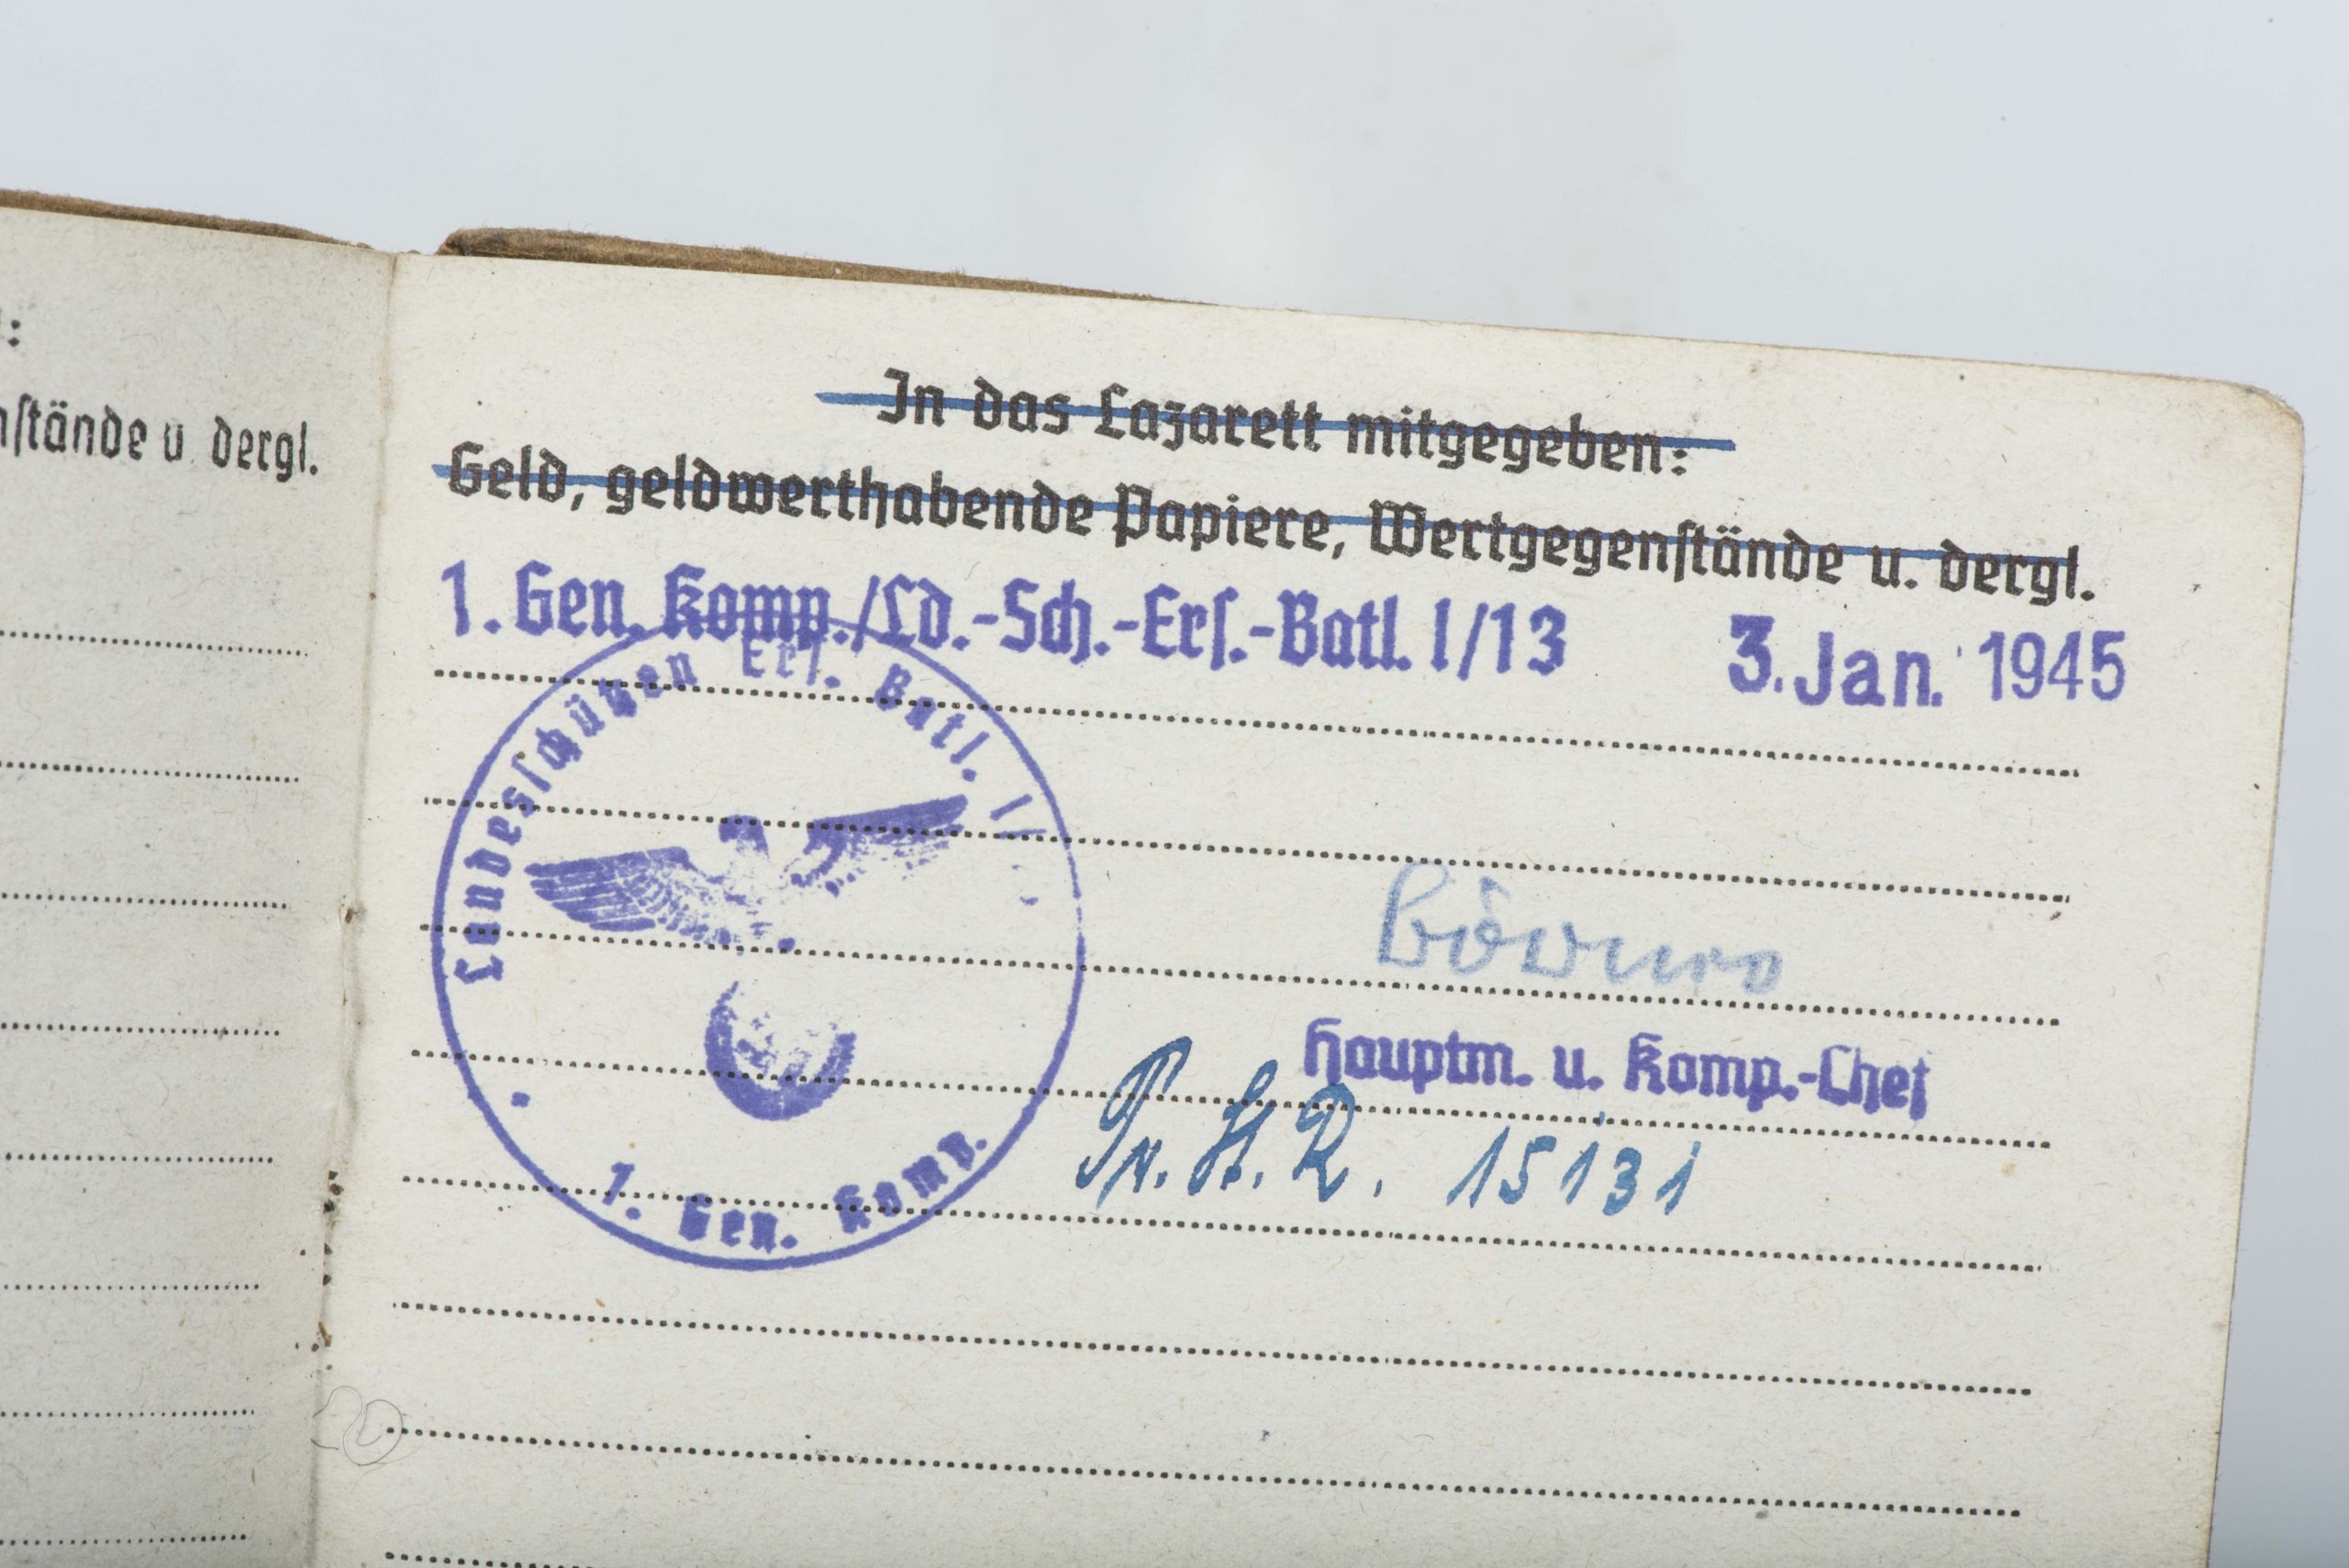 :
nstände u. dergl.
In das Lazarett mitgegeben:
Geld, geldwerthabende Papiere, Wertgegenstände u. dergl.
1. Gen. Komp./Ld.-Sch.-Ers.-Batl. I/13 3. Jan. 1945
Landesschützen Ers. Batl. I/
1. Gen. Komp.
Hauptm. u. Komp.-Chef
15131